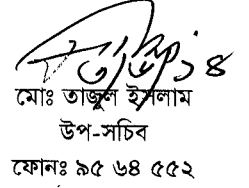 মোঃ তাজুল ইসলাম
উপ-সচিব
ফোনঃ ৯৫ ৬৪ ৫৫২